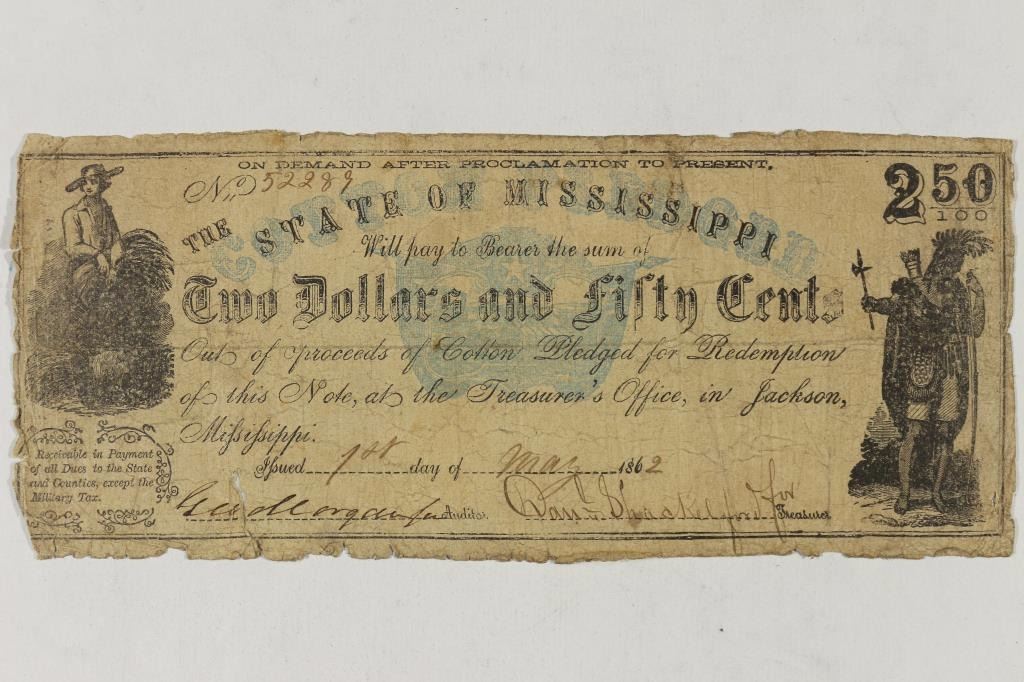 ON DEMAND AFTER PROCLAMATION TO PRESENT,
No 52289
2 50
100
COTTON
THE STATE OF MISSISSIPPI
Will pay to Bearer the sum of
Two Dollars and Fifty Cents
Out of proceeds of Cotton Pledged for Redemption
of this Note, at the Treasurer's Office, in Jackson,
Mississippi.
Issued 1st day of May 1862
Receivable in Payment
of all Dues to the State
and Counties, except the
Military Tax.
Geo Morgan for Auditor.
Shackelford for Treasurer